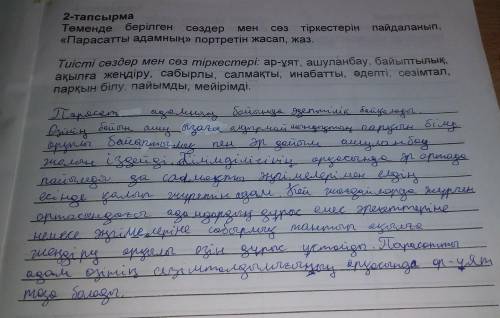 2-тапсырма
Төменде берілген сөздер мен сөз тіркестерін пайдаланып,
«Парасатты адамның» портретін жасап, жаз.
Тиісті сөздер мен сөз тіркестері: ар-ұят, ашуланбау, байыптылық,
ақылға жеңдіру, сабырлы, салмақты, инабатты, әдепті, сезімтал,
парқын білу, пайымды, мейірімді.
Парасат адамның бойында әдептілік байқалады.
Өзінің бойын ашу ызаға парқын білу
арқылы байыптылық пен әр дайым ашуланбау
жолын іздейді. Білімділігінің арқасында әр ортада
пайымды да салмақты әңгімелерімен елдің
есінде қалып жүретін адам. Кей жағдайларда жүрген
ортасындағы адамдардың дұрыс емес әрекеттеріне
немесе әңгімелеріне сабырлық танытып ақылға
жеңдіру арқылы өзін дұрыс ұстайды. Парасатты
адам өзінің сезімталдылығының арқасында ар-ұят
таза болады.